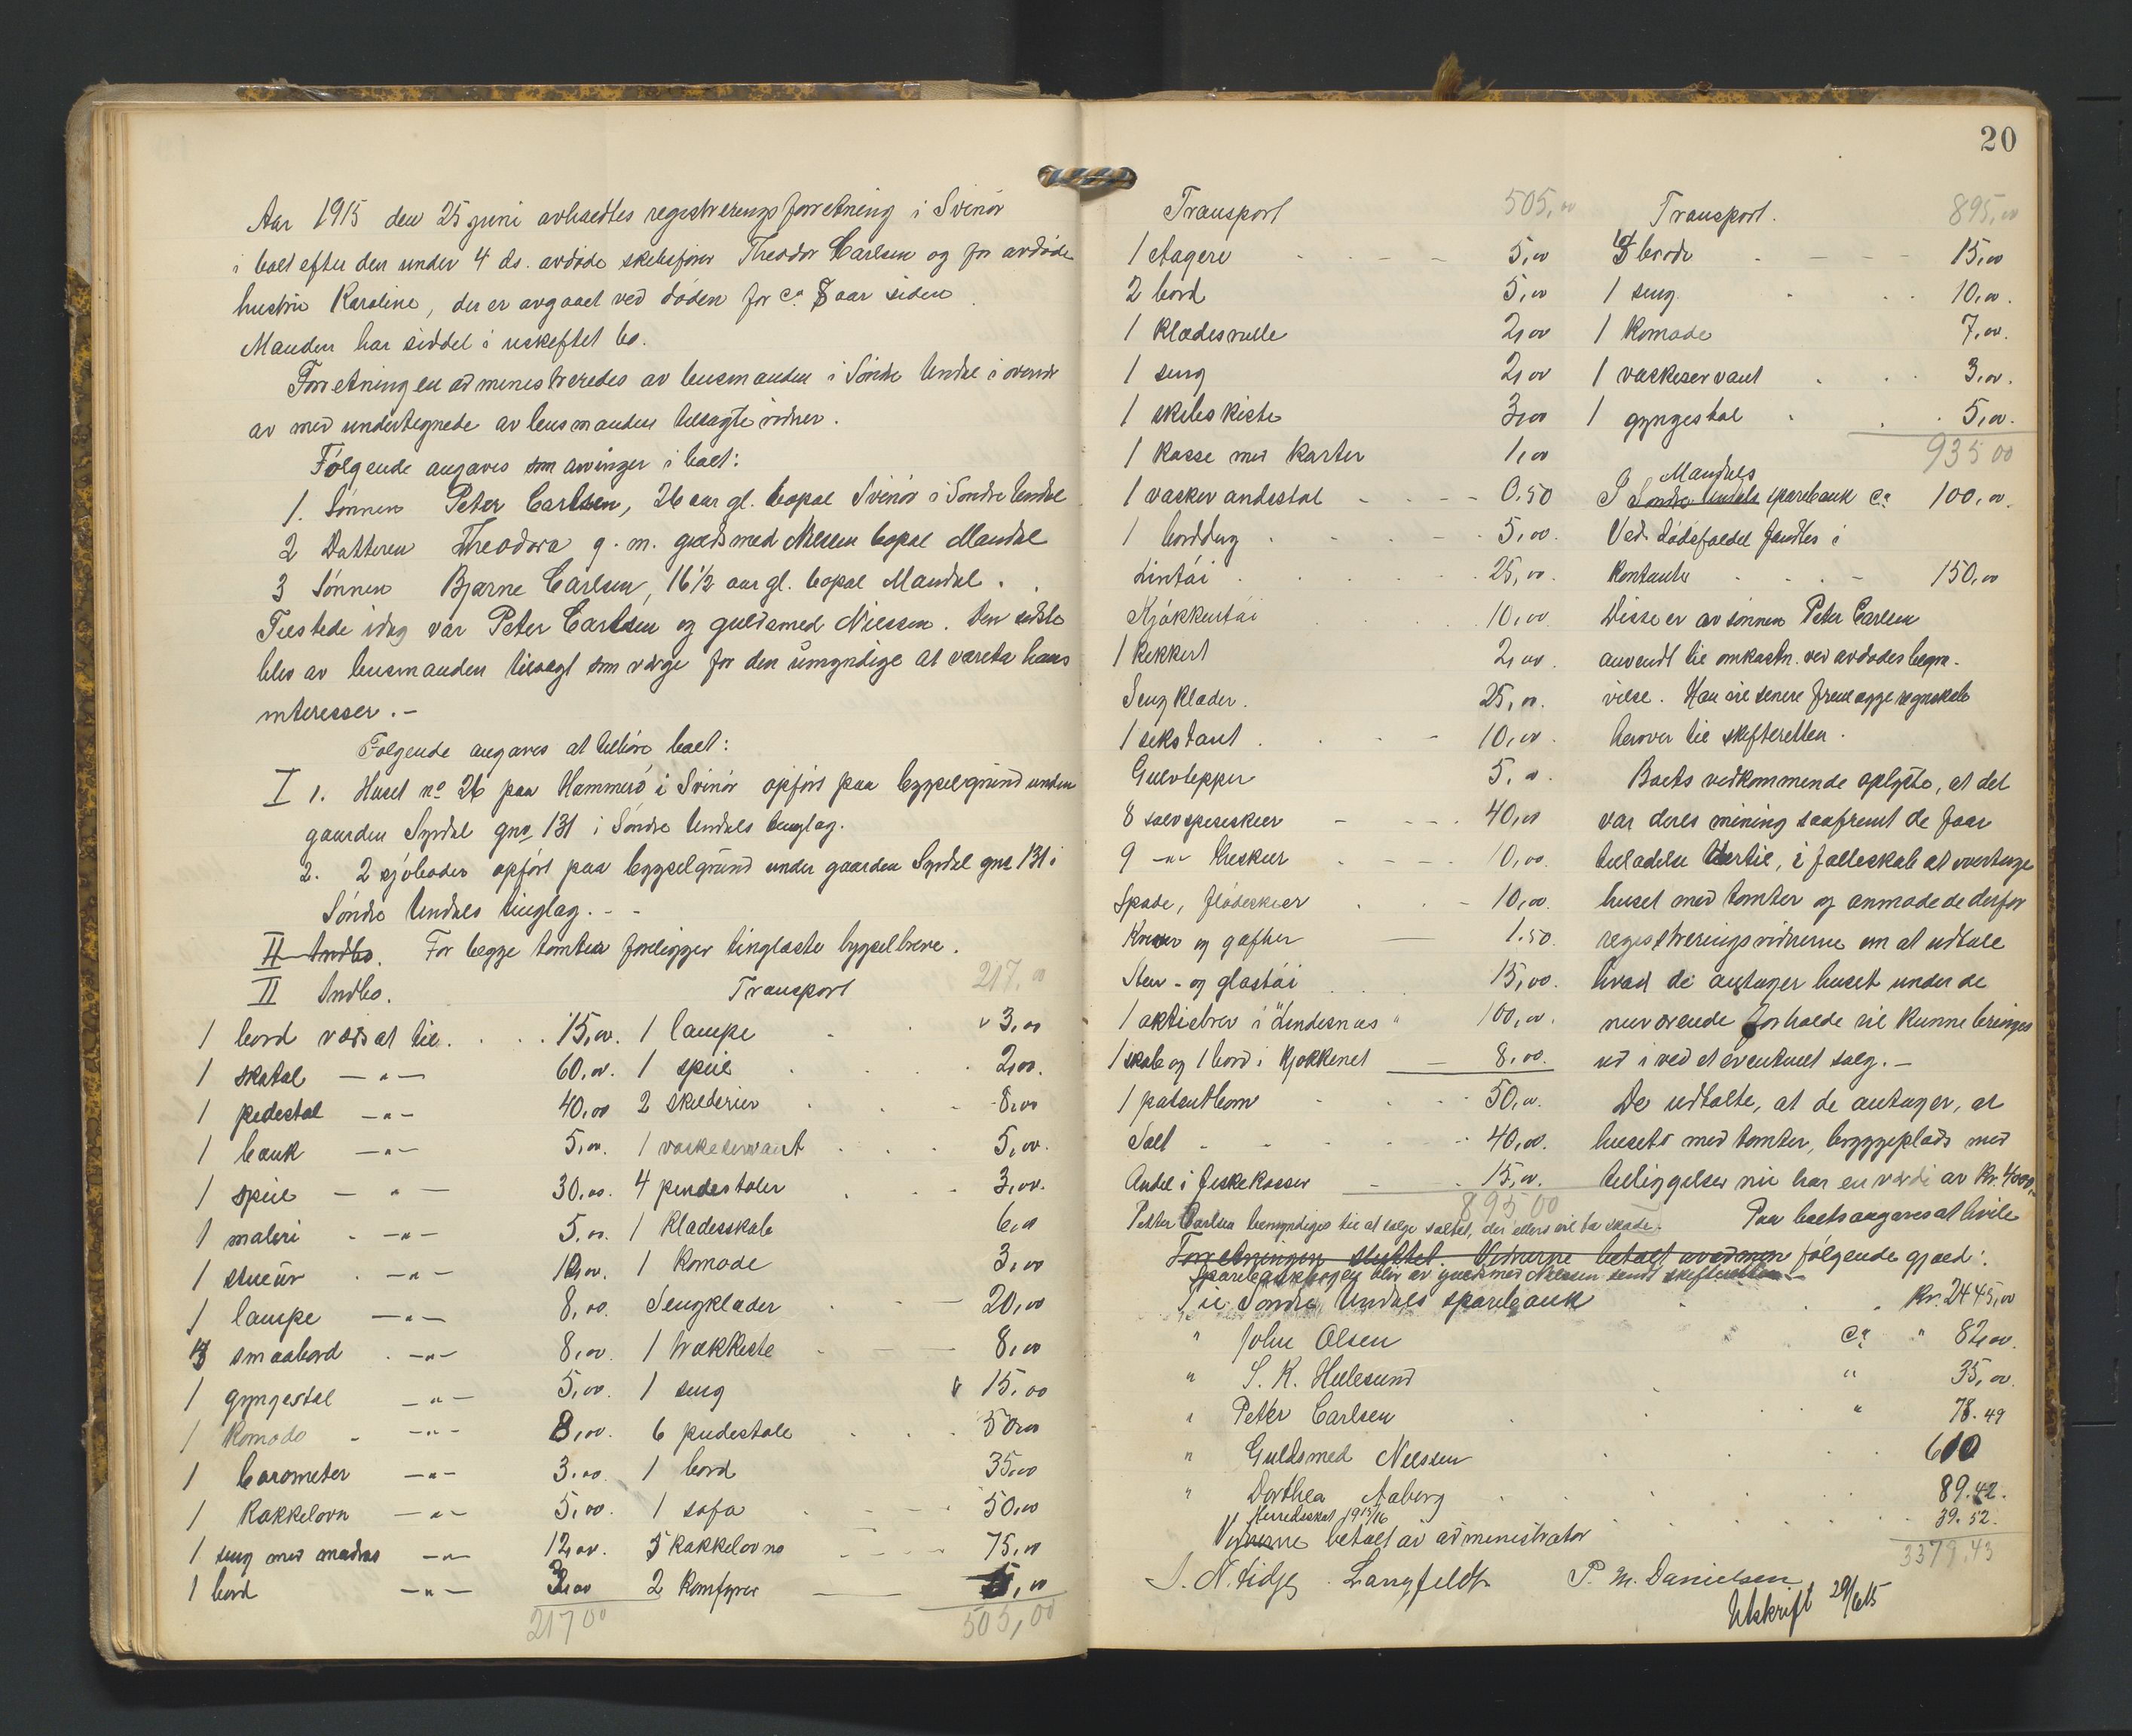 Aar 1915 den 25 juni avholdtes registreringsforretning i Svinör
i boet efter den under 4 ds. avdöde skibsförer Theodor Carlsen og for avdöde
hustru Karoline, der er avgaaet ved döden for ca. 8 aar siden.
Manden har siddet i uskiftet bo.
Forretningen administreredes av lensmanden i Söndre Undal i overvær
av med undertegnede av lensmanden tilsagte vidner.
Følgende angaves som arvinger i boet:
1. Sönnen Peter Carlsen, 26 aar gl. bopæl Svinör i Söndre Undal
2 Datteren Theodora g. m. guldsmed Nielsen bopæl Mandal
3 Sönnen Bjarne Carlsen, 16 1/2 aar gl. bopæl Mandal.
Tilstede idag var Peter Carlsen og guldsmed Nielsen. Den sidste
blev av lensmanden tilsagt som værge for den umyndige at vareta hans
interesser.-
Følgende angaves at tilhöre boet:
I 1. Huset no 26 paa Hammerö i Svinör opfört paa bygselgrund under
gaarden Syrdal gno 131 i Söndre Undals tinglag.
2. 2 sjöboder opfört paa bygselgrund under gaarden Syrdal gno 131 i
Söndre Undals tinglag. - -
II Indbo. For begge tomter foreligger tinglæste bygselbreve.
II Indbo.
1 bord værdsat til . . . . 15,00.
1 skatol — " — 60,00.
1 pidestal — " — 40,00
1 bænk — " — 5,00.
1 speil — " — 30,00.
1 maleri - — " — 5,00.
1 stueur . — " — 10,00.
1 lampe — " — 8,00.
3 smaabord . — " — 8,00.
1 gyngestol — " — 5,00.
1 komode - — " — 8,00.
1 barometer — " — 3,00.
1 kakkelovn — " — 5,00.
1 seng med madras — " — 12,00.
1 bord — " — 3,00
217 00
Transport 217,00
1 lampe 3,00
1 speil 2,00.
2 skilderier 8,00
1 vaskeservant 5,00.
4 pindestoler 3,00.
1 klædesskab 6,00
1 komode 3,00
Sengklæder 20,00
1 trækkiste 8,00
1 seng 15,00
6 pidestole 50,00
1 bord 35,00
1 sofa 50,00
3 kakkelovne 75,00
2 komfyrer 5,00
505,00
20
Transport 505,00
1 etagere 5,00
2 bord 5,00
1 klædesrulle 2,00
1 seng 2,00
1 skibskiste 3,00
1 kasse med karter 1,00
1 vaskevandsstol 0,50
1 borddug 5,00.
Lintöi 25,00.
Kjökkentöi 10,00
1 kikkert 2,00.
Sengklæder. 25,00.
1 sekstant 10,00.
Gulvtepper 5,00.
8 sølvspiseskeer 40,00
9 -"- theskeer 10,00.
Spade, flödeskeer 10,00.
Kniver og gafler 1.50.
Sten- og glastöi 15,00.
1 aktiebrev i "Lindesnæs" 100,00.
1 skab og 1 bord i kjökkenet 8,00.
1 patentlom 50,00.
Salt 40,00.
Andel i fiskekasser 15,00.
895 00
Petter Carlsen bemyndiges til at sælge saltet, der ellers vil ta skade.
Forretningen sluttet. Vidnerne betalt av adm.
Sparebankbogen blev av guldsmed Nielsen sendt skifteretten.
Transport. 895,00
3 borde 15,00
1 seng 10,00.
1 komode 7,00.
1 vaskeservant 3,00.
1 gyngestol 5,00.
935 00
Mandals
I Söndre Undals sparebank ca. 100,00.
Ved dödsfaldet fandtes i
kontanter 150,00
Disse er av sönnen Peter Carlsen
anvendt til omkostn. ved avdödes begra-
velse. Han vil senere fremlægge regnskab
herover til skifteretten.
Boets vedkommende oplyste, at det
var deres mening saafremt de faar
tilladelse hertil, i fælleskab at overtage
huset med tomter og anmodede derfor
registreringsvidnerne om at udtale
hvad de antager huset under de
nuværende forholde vil kunne bringes
ud i ved et eventuelt salg.-
De udtalte, at de antager, at
husets med tomter, byggeplads med
tilliggelser nu har en værdi av kr. 4000,-
Paa boets angaves at hvile
følgende gjæld:
Til Söndre Undals sparebank kr. 2445,00
" John Olsen ca. " 82,00.
" S. K. Hillesund " 35,00.
" Peter Carlsen " 78.49
" Guldsmed Nielsen 610
" Dorthea Aaberg 89.42.
Herredsskat 1915/16 39.52.
Vidnerne betalt av administrator
3379.43
S. N. Lidge . Langfeldt P. M. Danielsen
Utskrift 29/6 15